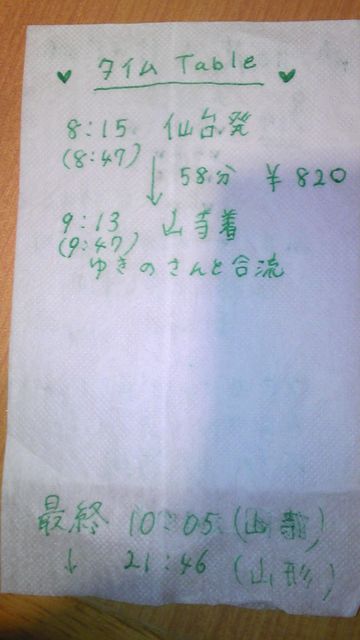 ♥ タイム Table ♥
8:15 仙台発
(8:47)
↓ 58分 ¥820
9:13 山寺着
(9:47)
ゆきのさんと合流
最終 10:05 (山寺)
↓ 21:46 (山形)